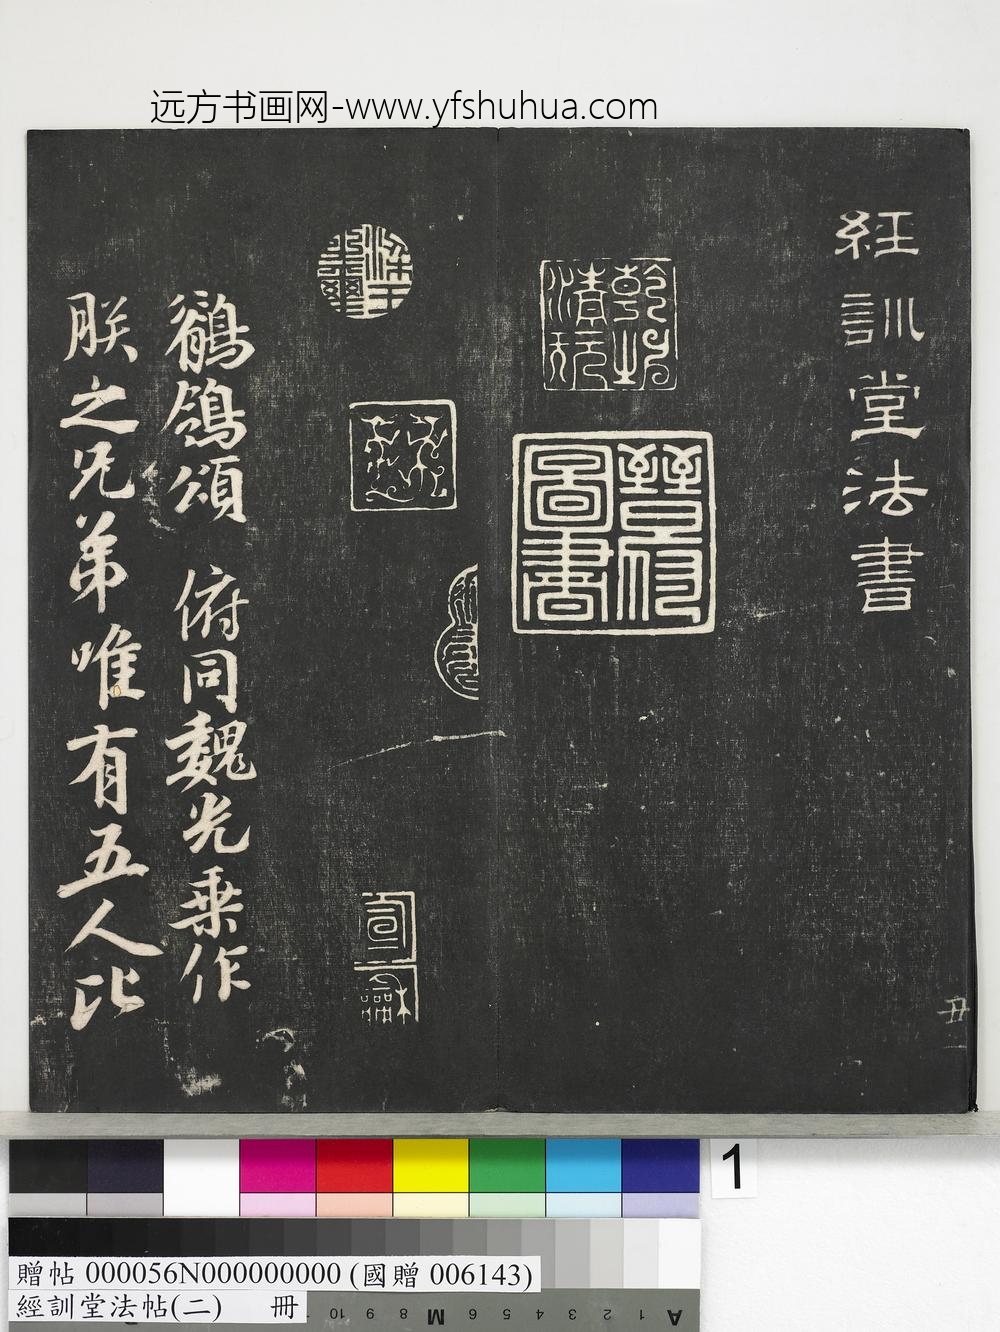 远方书画网-www.yfshuhua.com
經訓堂法書
丑一
晉府圖書
鶺鴒頌 俯同魏光乗作
朕之兄弟唯有五人比
1
贈帖 000056N000000000 (國贈 006143)
經訓堂法帖(二) 冊
10 9 8 M 6 5 4 3 2 1 A